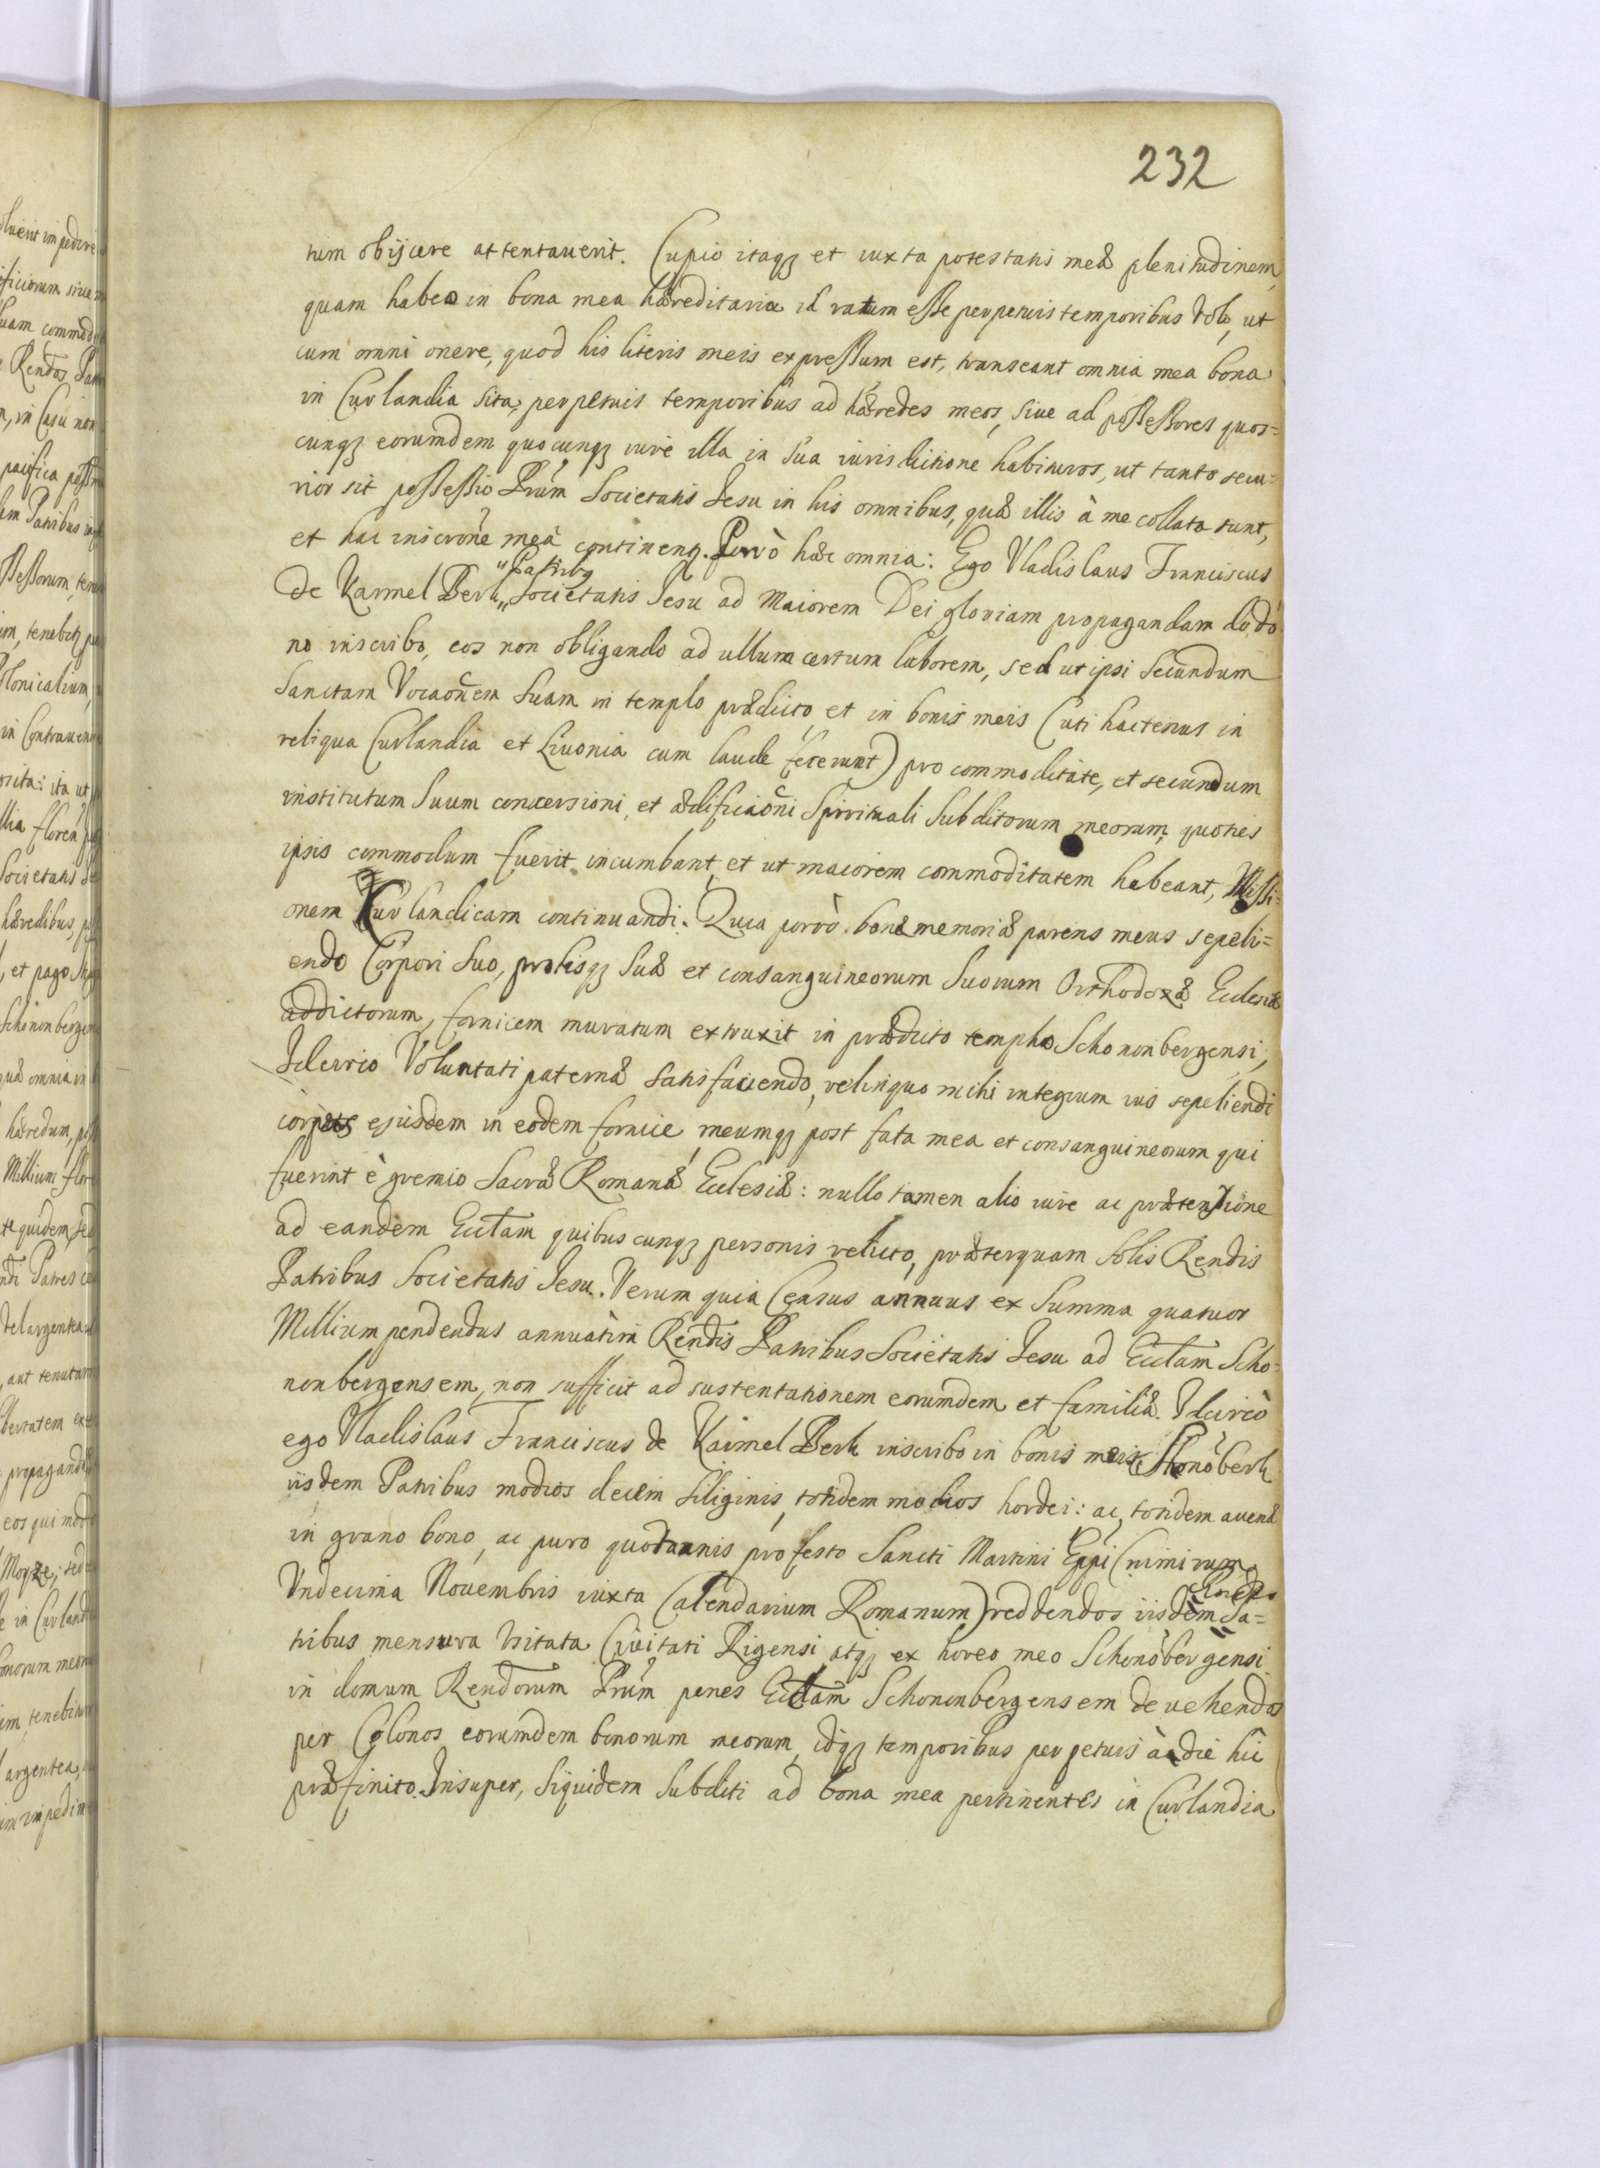 232
tum obijcere attentauerit. Cupio itaqȝ et iuxta potestatis meæ plenitudinem,
quam habeo in bona mea hæreditaria id ratum esse perpetuis temporibus volo, ut
cum omni onere, quod his literis meis expressum est, transeant omnia mea bona
in Curlandia sita, perpetuis temporibus ad hæredes meos, siue ad possessores quos=
cunqȝ eorumdem quocunqȝ iure illa in sua iurisditione habituros, ut tanto secu=
rior sit possessio Prũm Societatis Jesu in his omnibus, quæ illis à me collata sunt,
et hac inscrõne meâ continentȝ. Porrò hæc omnia: Ego Vladislaus Franciscus
de Karmel Berk „Patribȝ„ Societatis Jesu ad Maiorem Dei gloriam propagandam do do
no inscribo, eos non obligando ad ullum certum laborem, sed ut ipsi secundum
Sanctam Vocaõnem suam in templo prædicto, et in bonis meis (uti hactenus in
reliqua Curlandia et Liuonia cum laude fecerunt) pro commoditate, et secundum
institutum suum conuersioni, et ædificaõni Spirituali Subditorum meorum, quoties
ipsis commodum fuerit incumbant, et ut maiorem commoditatem habeant, Missi=
onem Curlandicam continuandi. Quia porrò bonæ memoriæ parens meus sepeli=
endo Corpori suo, prolisqȝ suæ et consanguineorum suorum Orthodoxæ Eclesiæ
addictorum, fornicem muratum extruxit in prædicto templo Schononbergensi,
Idcirco Voluntati paternæ satisfaciendo, relinquo mihi integrum ius sepeliendi
corpus ejusdem in eodem fornice, meumqȝ post fata mea et consanguineorum qui
fuerint è gremio Sacræ Romanæ Ecclesiæ: nullo tamen alio iure ac prætensione
ad eandem Eccłam quibuscunqȝ personis relicto, præterquam solis Rendis
Patribus Societatis Jesu. Verum quia Census annuus ex Summa quatuor
Millium pendendus annuatim Rendis Patribus Societatis Jesu ad Eccłam Scho=
nonbergensem, non sufficit ad sustentationem eorumdem et familiæ. Idcircò
ego Vladislaus Franciscus de Karmel Berk inscribo in bonis meis Shonõberk
iisdem Patribus modios decem siliginis, totidem modios hordei: ac totidem auenæ
in grano bono, ac puro quotannis pro festo Sancti Martini Eppi (nimirum
Vndecima Nouembris iuxta Calendarium Romanum) reddendos iisdem Pa=
tribus mensura Vsitata Ciuitati Rigensi atqȝ ex horeo meo Schonõbergensi
in domum Rendorum Prũm penes Eccłam Schononbergensem deuehendos
per Colonos eorumdem bonorum meorum, idqȝ temporibus perpetuis à die hic
præfinito. Insuper, siquidem Subditi ad bona mea pertinentes in Curlandia